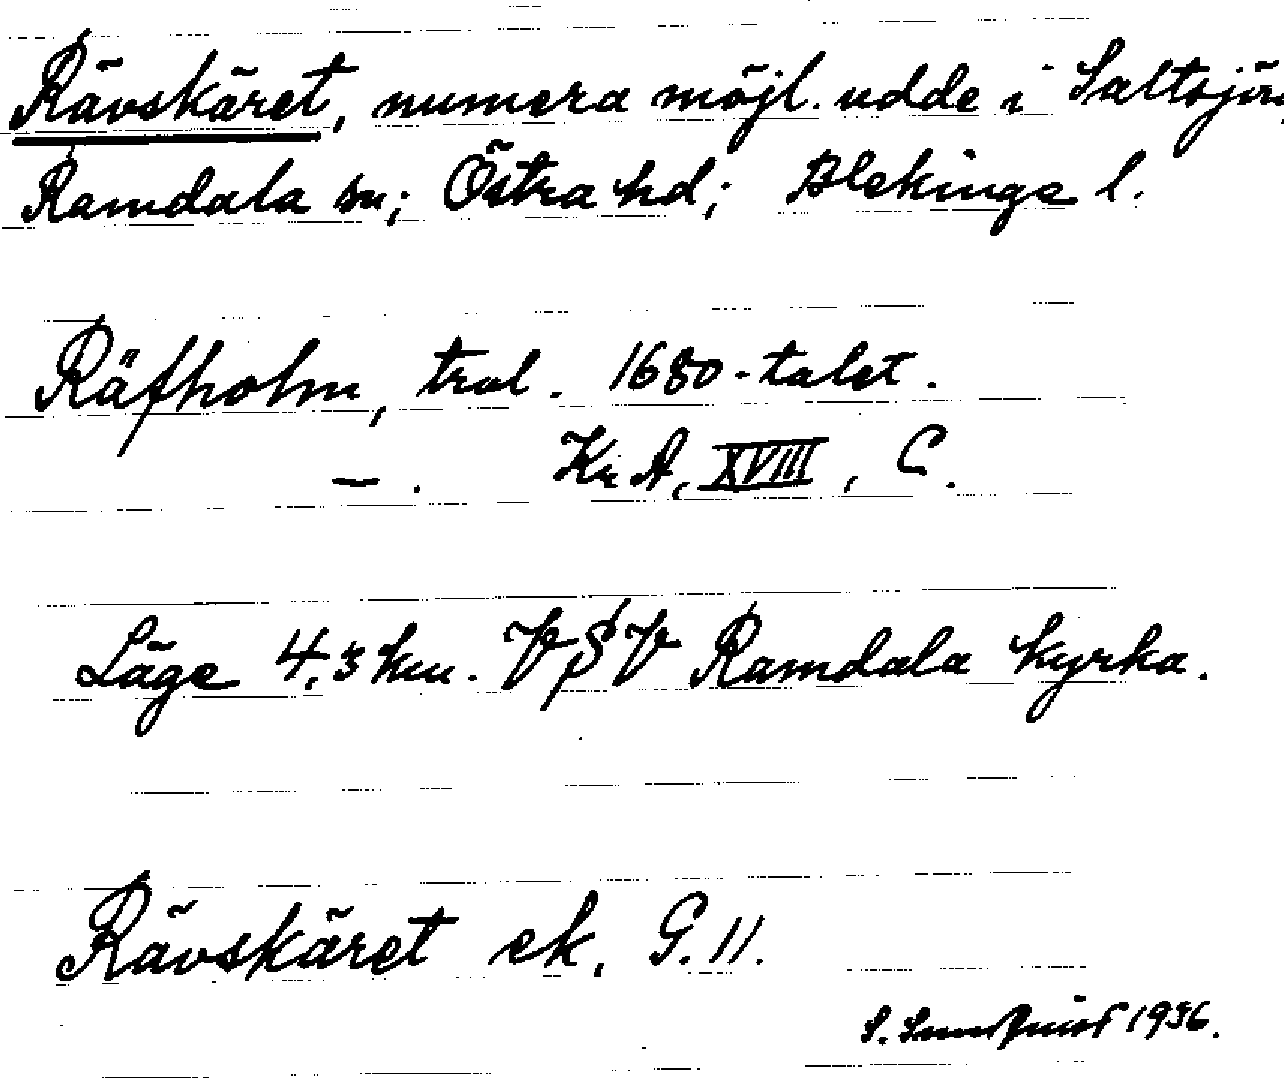 Rävskäret, numera möjl. udde i Saltsjön,
Ramdala sn; Östra hd; Blekinge l.
Räfholm, trol. 1680-talet.
— . Kr A, XVIII, C.
Läge 4,3 km. VSV Ramdala kyrka.
Rävskäret ek. G. 11.
S. 1936.